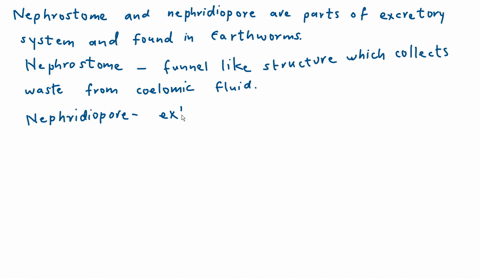 Nephrostome and nephridiopore are parts of excretory
system and found in Earthworms.
Nephrostome - funnel like structure which collects
waste from coelomic fluid.
Nephridiopore - ex